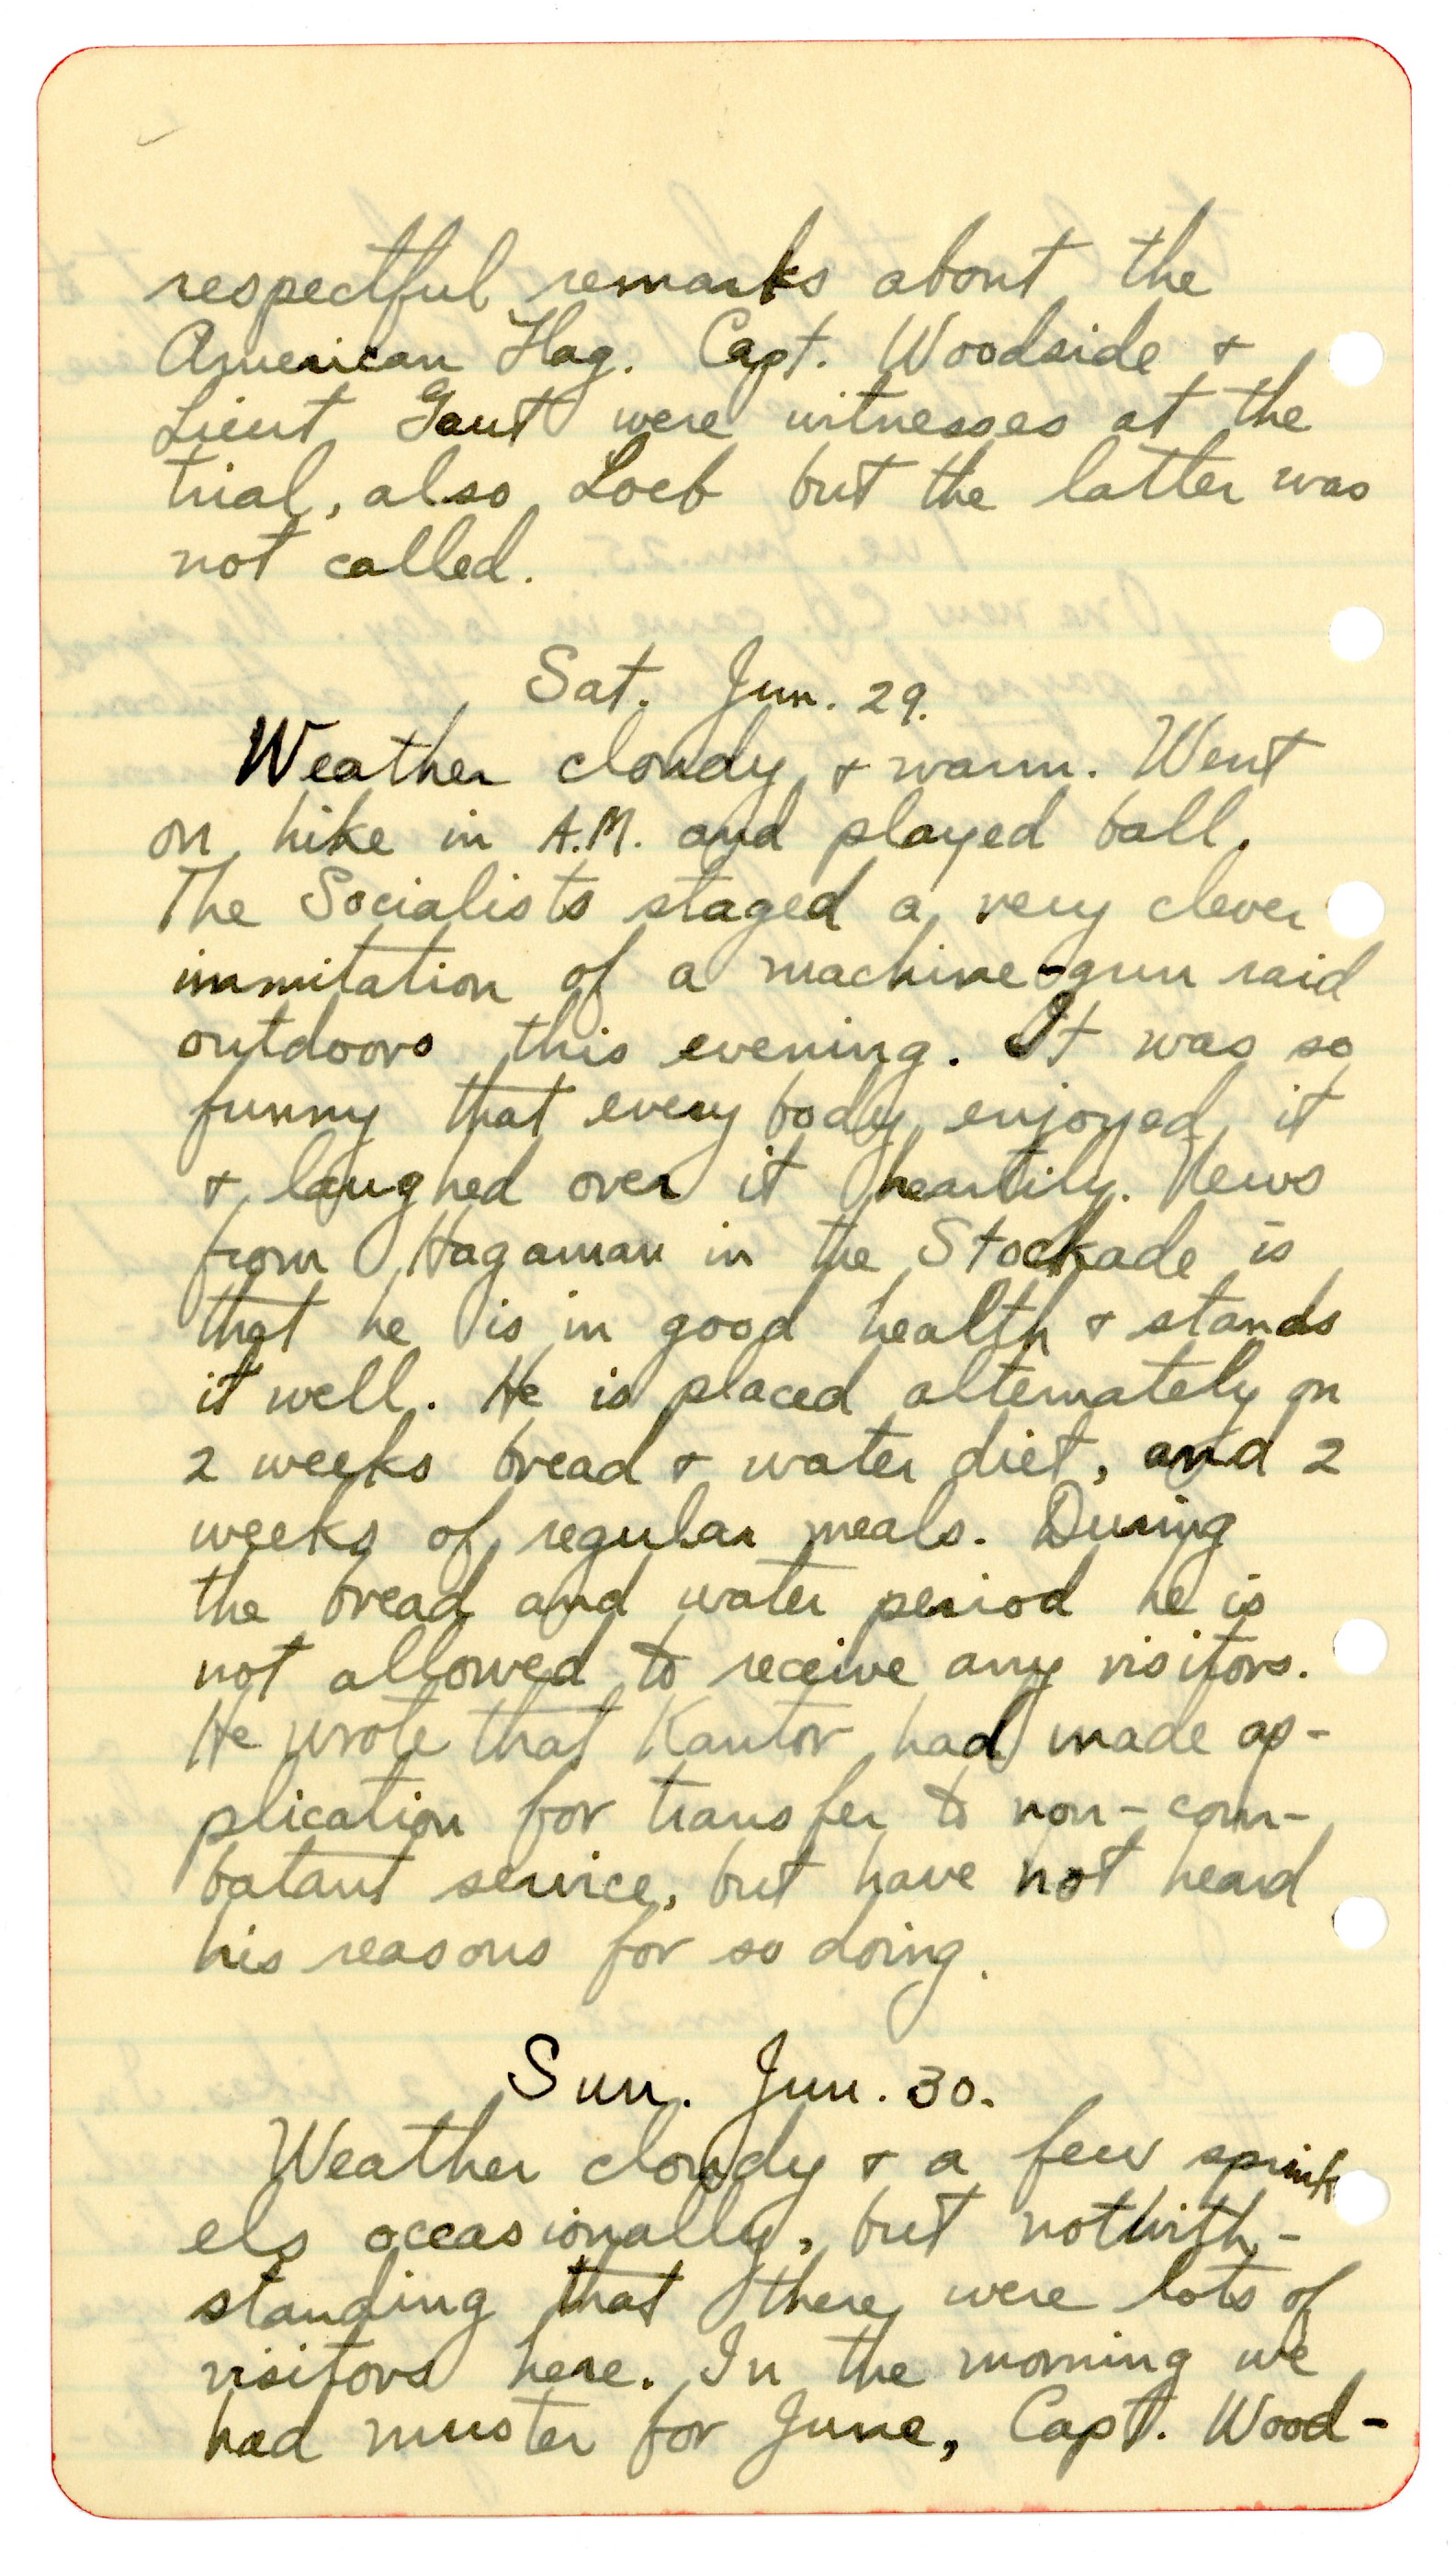 respectful remarks about the
American Flag. Capt. Woodside &
Lieut Gant were witnesses at the
trial, also Loeb but the latter was
not called.
Sat. Jun. 29.
Weather cloudy & warm. Went
on hike in A.M. and played ball.
The Socialists staged a very clever
immitation of a machine-gun raid
outdoors this evening. It was so
funny that every body enjoyed it
& laughed over it heartily. News
from Hagaman in the Stockade is
that he is in good health & stands
it well. He is placed alternately on
2 weeks bread & water diet, and 2
weeks of regular meals. During
the bread and water period he is
not allowed to receive any visitors.
He wrote that Kantor had made ap-
plication for transfer to non-com-
batant service, but have not heard
his reasons for so doing.
Sun. Jun. 30.
Weather cloudy & a few sprink
els occasionally, but notwith-
standing that there were lots of
visitors here. In the morning we
had muster for June, Capt. Wood-